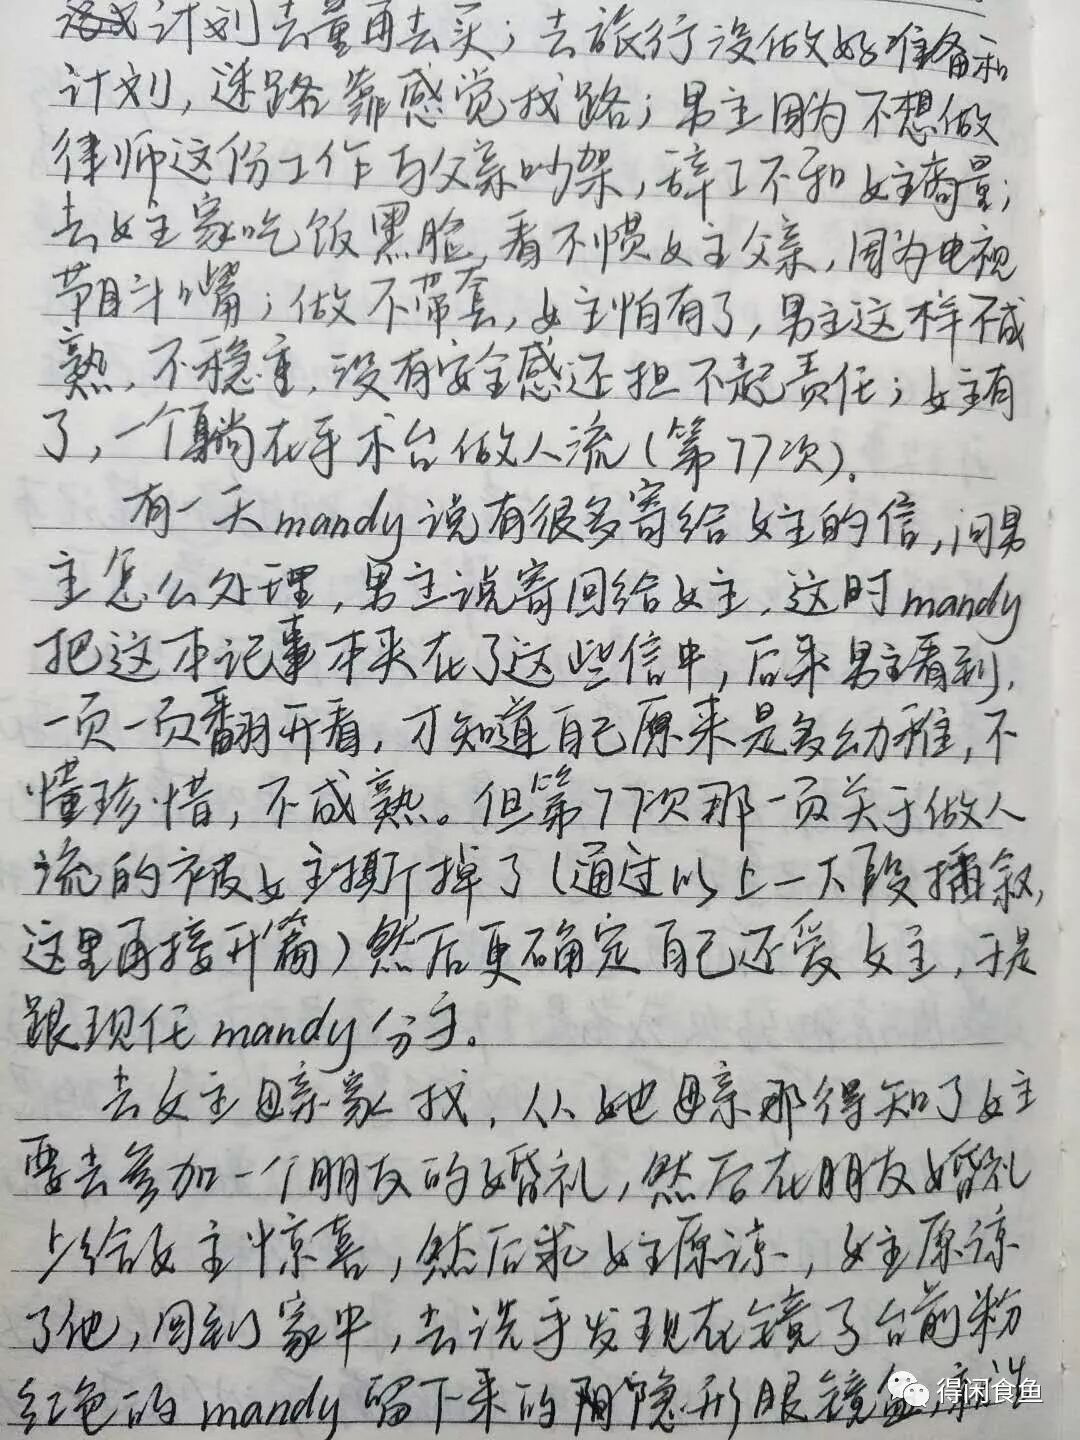 计划去量再去买；去旅行没做好准备和
计划，迷路靠感觉找路；男主因为不想做
律师这份工作与父亲吵架，辞工不和女主商量；
去女主家吃饭黑脸，看不惯女主父亲，因为电视
节目斗嘴；做不带套，女主怕有了，男主这样不成
熟，不稳重，没有安全感还担不起责任；女主有
了，一个躺在手术台做人流（第77次）。
有一天mandy说有很多寄给女主的信，问男
主怎么处理，男主说寄回给女主，这时mandy
把这本记事本夹在了这些信中，后来男主看到，
一页一页翻开看，才知道自己原来是多幼稚，不
懂珍惜，不成熟。但第77次那一页关于做人
流的被女主撕掉了（通过以上一大段插叙，
这里再接开篇）然后更确定自己还爱女主，于是
跟现任mandy分手。
去女主母亲家找，从她母亲那得知了女主
要去参加一个朋友的婚礼，然后在朋友婚礼
上给女主惊喜，然后求女主原谅，女主原谅
了他，回到家中，去洗手发现在镜子台前粉
红色的mandy留下来的隐形眼镜盒，
得闲食鱼